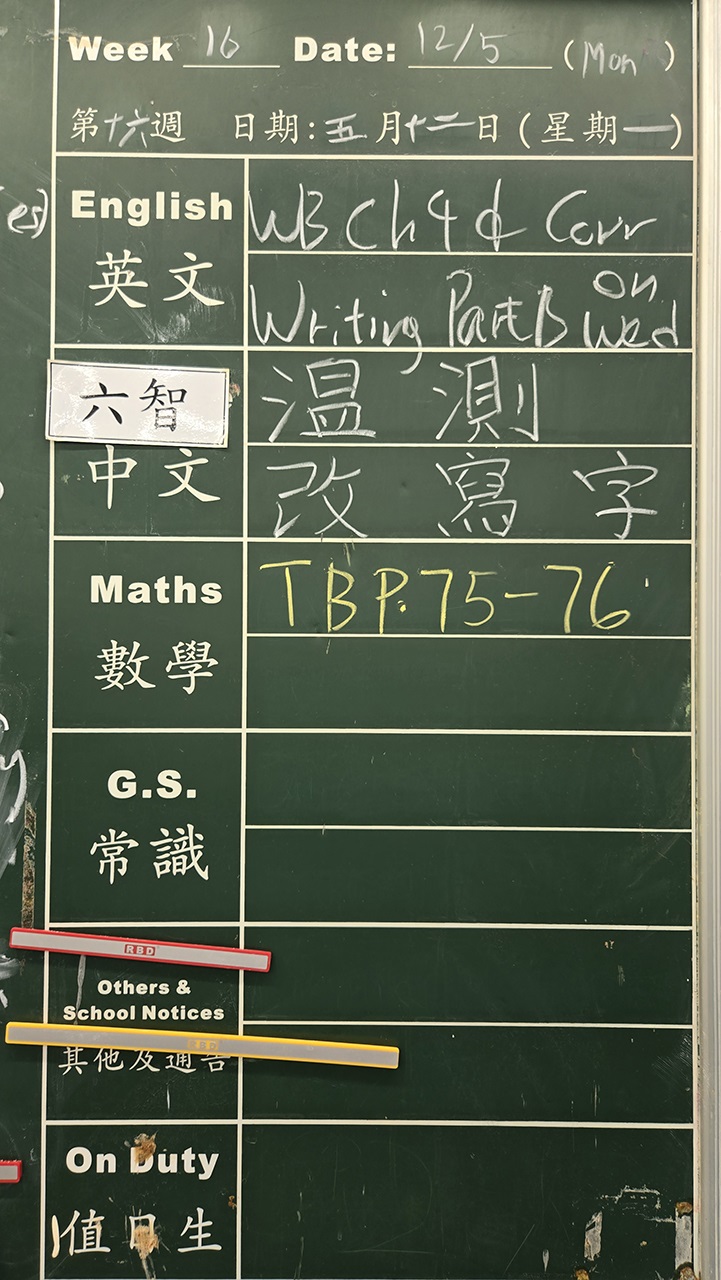 Week 16 Date: 12/5 (Mon)
第十六週 日期:五月十二日(星期一)
es)
English WB Ch 4 & Corr
英文 Writing Part B on Wed
六智 溫測
中文 改寫字
Maths TB P.75-76
數學
G.S.
常識
RBD
Others &
School Notices
RBD
其他及通告
On Duty
值日生